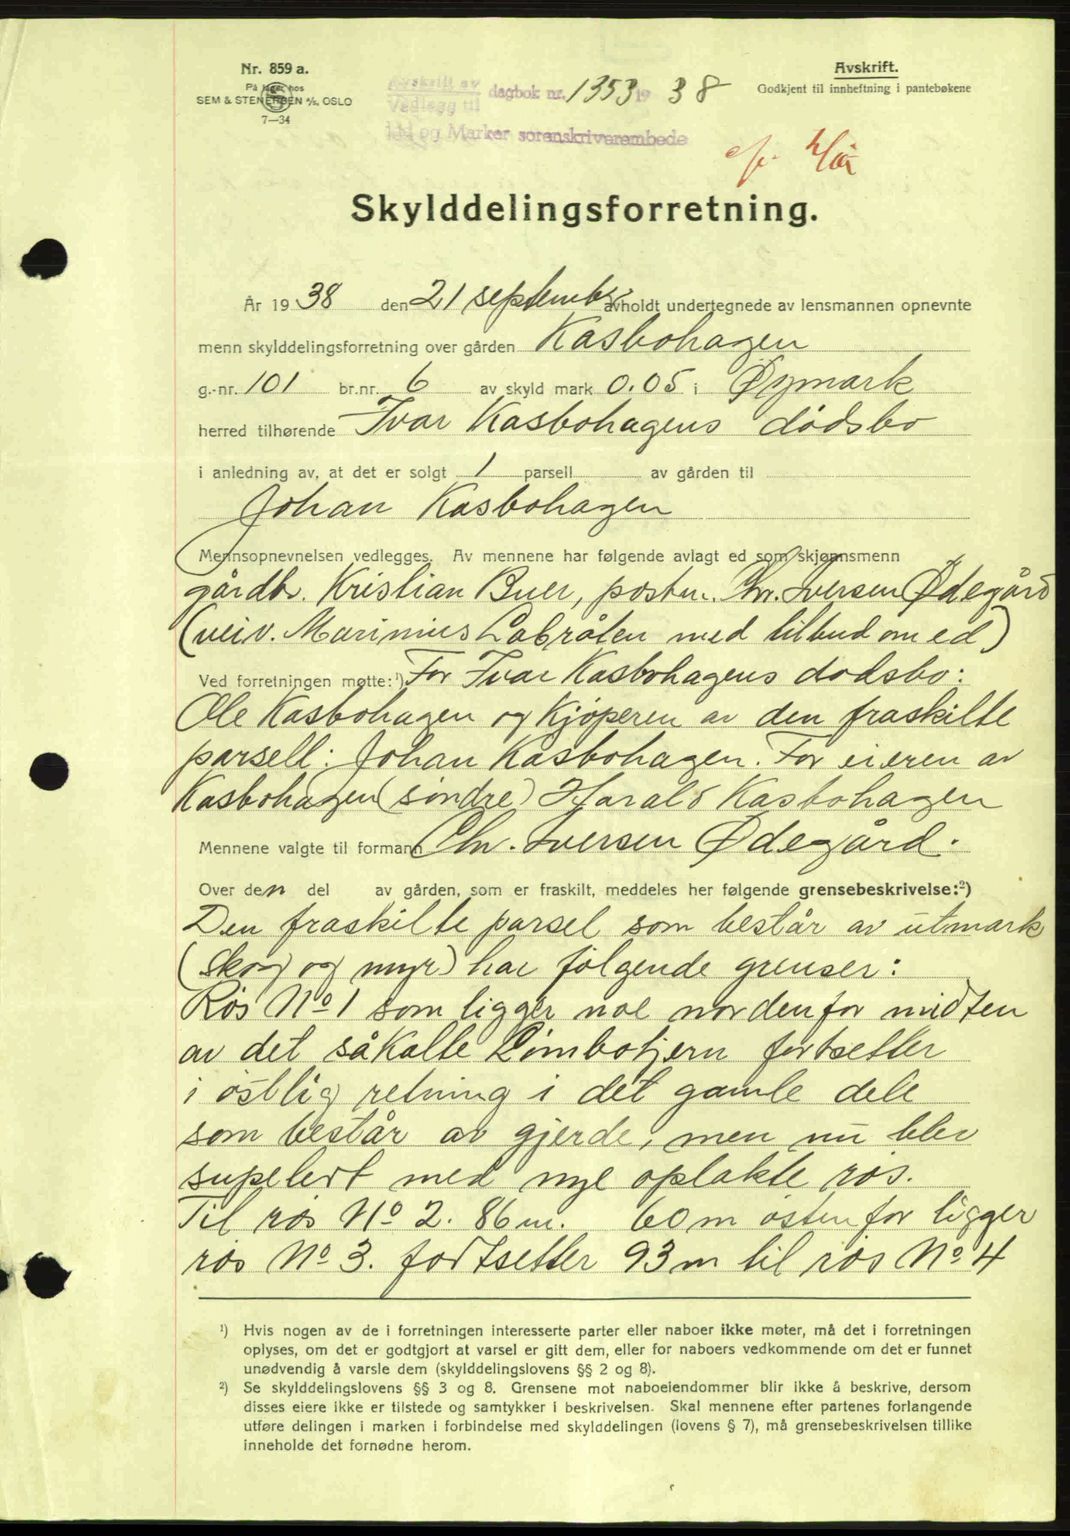 Nr. 859 a.
På lager hos
SEM & STENERSEN A/S, OSLO
7—34
Avskrift av
Vedlegg til
dagbok nr. 1353 19 38
Idd og Marker sorenskriverembede
Avskrift.
Godkjent til innheftning i pantebøkene
Skylddelingsforretning.
År 19 38 den 21 september avholdt undertegnede av lensmannen opnevnte
menn skylddelingsforretning over gården Kasbohagen
g.-nr. 101 br.nr. 6 av skyld mark 0.05 i Øymark
herred tilhørende Ivar Kasbohagens dødsbo
i anledning av, at det er solgt 1 parsell av gården til
Johan Kasbohagen
Mennsopnevnelsen vedlegges. Av mennene har følgende avlagt ed som skjønnsmenn
gårdb. Kristian Buer, postm. Chr. Iversen Ødegård
(veiv. Marinius Labråten med tilbud om ed)
Ved forretningen møtte:¹) For Ivar Kasbohagens dødsbo:
Ole Kasbohagen og Kjøperen av den fraskilte
parsell: Johan Kasbohagen. For eieren av
Kasbohagen (søndre) Harald Kasbohagen
Mennene valgte til formann Chr. Iversen Ødegård.
Over den del av gården, som er fraskilt, meddeles her følgende grensebeskrivelse:²)
Den fraskilte parsel som består av utmark
(skog og myr) har følgende grenser:
Røs No 1 som ligger noe nordenfor midten
av det såkalte Limbotjern fortsetter
i østlig retning i det gamle dele
som består av gjerde, men nu blev
suplert med nye oplakte røs.
Til røs No 2. 86 m. 60 m østenfor ligger
røs No 3. fortsetter 93 m til røs No 4
¹) Hvis nogen av de i forretningen interesserte parter eller naboer ikke møter, må det i forretningen
oplyses, om det er godtgjort at varsel er gitt dem, eller for naboers vedkommende om det er funnet
unødvendig å varsle dem (skylddelingslovens §§ 2 og 8).
²) Se skylddelingslovens §§ 3 og 8. Grensene mot naboeiendommer blir ikke å beskrive, dersom
disses eiere ikke er tilstede og samtykker i beskrivelsen. Skal mennene efter partenes forlangende
utføre delingen i marken i forbindelse med skylddelingen (lovens § 7), må grensebeskrivelsen tillike
inneholde det fornødne herom.